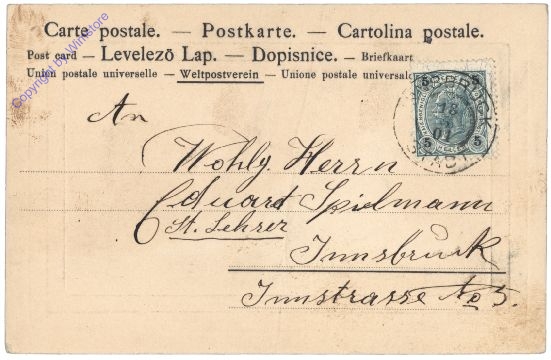 Carte postale. — Postkarte. — Cartolina postale.
Post card — Levelező Lap. — Dopisnice. — Briefkaart
Union postale universelle — Weltpostverein — Unione postale universale
Copyright by Winstore
5 5
5 5
INNSBRUCK
18
01
STADT
An
Wohlg. Herrn
Eduart Spielmann
St. Lehrer
Innsbruck
Innstrasse No 5.